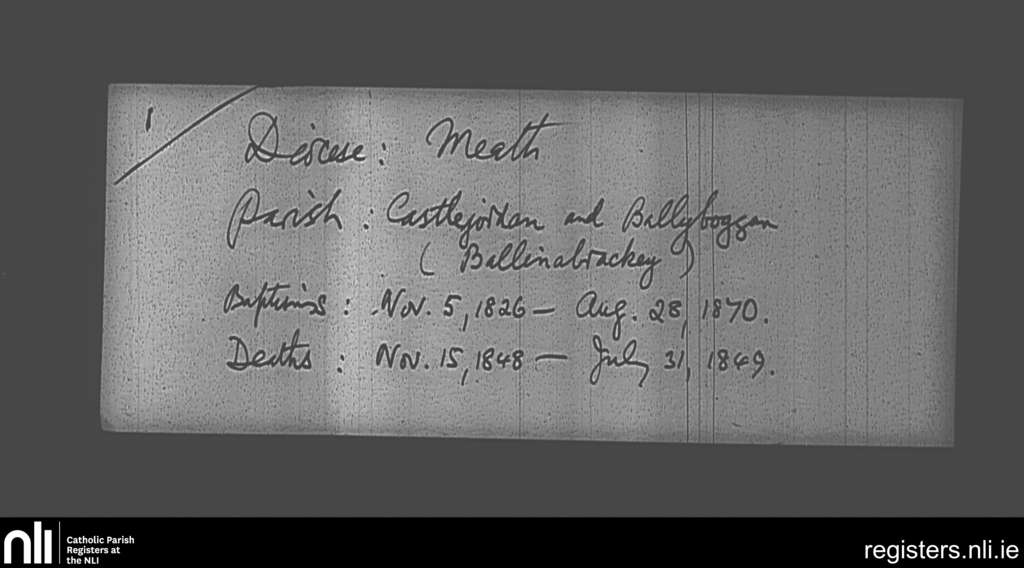 1
Diocese: Meath
Parish: Castlejordan and Ballyboggan
(Ballinabrackey)
Baptisms: Nov. 5, 1826 – Aug. 28, 1870.
Deaths: Nov. 15, 1848 – July 31, 1849.
nli
Catholic Parish
Registers at
the NLI
registers.nli.ie